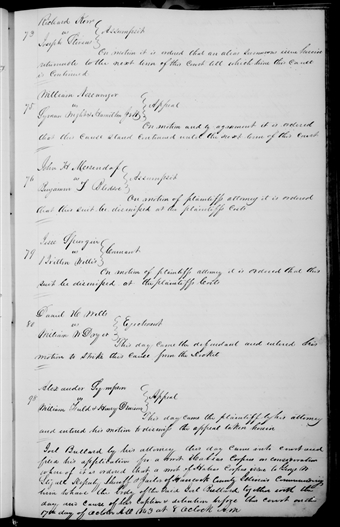 Richard Kerr
73 vs } Assumpsit
Joseph
On motion it is ordered that an alias Summons issue herein
returnable to the next term of this Court till which time this Cause
is Continued
William
75 vs } Appeal
Hamilton
On motion and by agreement it is ordered
that this Cause stand Continued until the next term of this Court
John H
76 vs } Assumpsit
Benjamin T
On motion of plaintiffs attorney it is ordered
that this suit be dismissed at the plaintiffs Costs
79 vs } Covenant
Willis
On motion of plaintiffs attorney it is ordered that this
suit be dismissed at the plaintiffs Costs
Daniel H Wells
80 vs } Ejectment
William W
This day came the defendant and entered his
motion to strike this Cause from the Docket
Alexander Sympson
98 vs } Appeal
William & Henry
This day came the plaintiff by his attorney
and entered his motion to dismiss the appeal taken herein
Joel Bullard by his attorney this day came into court and
filed his application for a writ Habeas Corpus in consideration
whereof it is ordered that a writ of Habeas Corpus issue to
Deputy Sheriff & Jailor of Hancock County Illinois Commanding
him to have the body of the said Joel Bullard together with the
day and cause of his caption & detention before this Court on the
17th day of October AD 1843 at 8 oclock A.M.